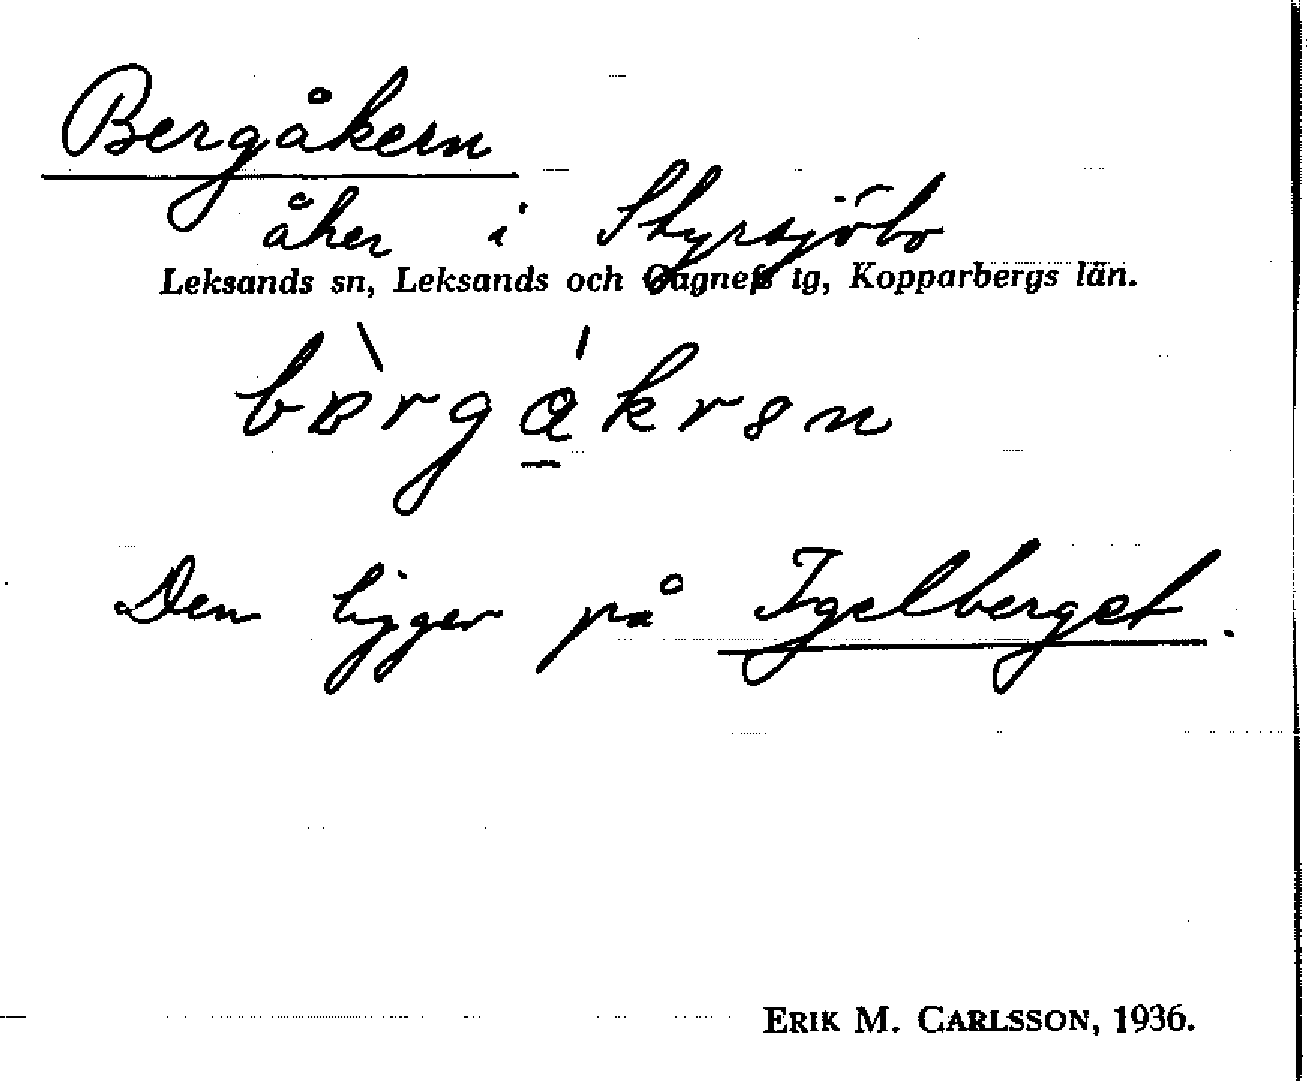 Bergåkern
åker i Styrsjöbo
Leksands sn, Leksands och Gagnefs tg, Kopparbergs län.
Den ligger på Igelberget.
ERIK M. CARLSSON, 1936.